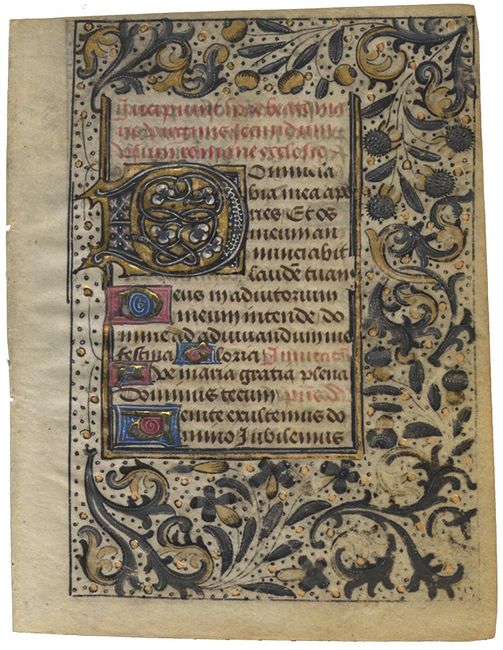 Incipiunt hore beate
virginis secundum
usum romane ecclesie
Domine la
bia mea ape
ries Et os
meum an
nunciabit
laudē tuam
Deus in adiutorium
meum intende do
mine ad adiuuandum me
festina Gloria
Aue maria gratia plena
Dominus tecum
Venite exultemus do
mino Iubilemus